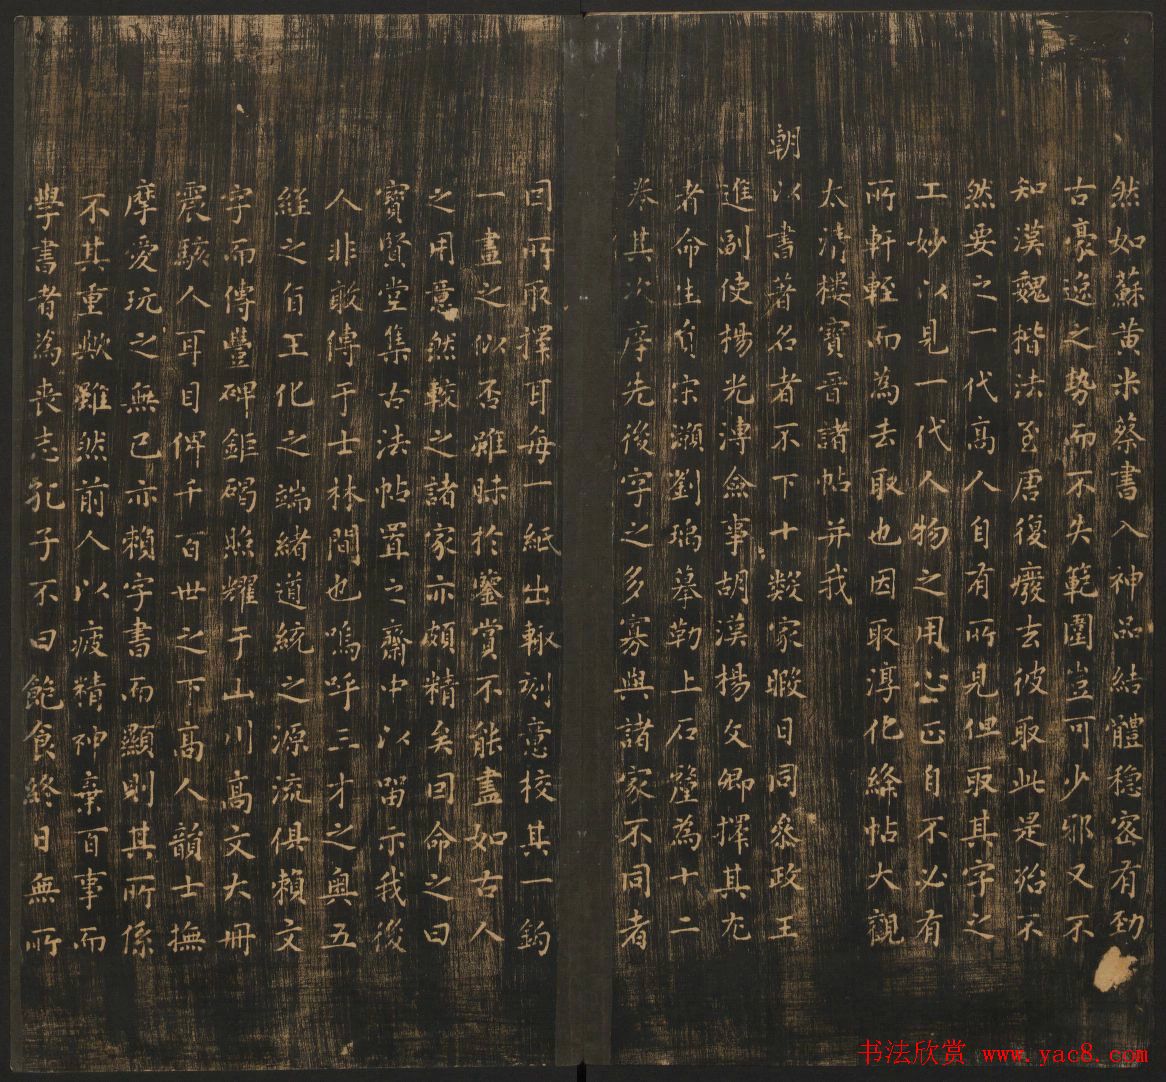 然如蘇黃米蔡書入神品結體穩密有勁
古豪逸之勢而不失範圍豈可少邪又不
知漢魏楷法至唐復癈去彼取此是殆不
然要之一代高人自有所見但取其字之
工妙以見一代人物之用心正自不必有
所軒輊而為去取也因取淳化絳帖大觀
太清樓寳晉諸帖并我
朝以書著名者不下十數家暇日同叅政王
進副使楊光溥僉事胡漢楊文卿擇其尤
者命生員宋灝劉瑀摹勒上石釐為十二
卷其次序先後字之多寡與諸家不同者
因所取擇耳每一紙出輒刻意校其一鈎
一畫之似否雖昧於鑒賞不能盡如古人
之用意然較之諸家亦頗精矣因命之曰
寳賢堂集古法帖置之齋中以留示我後
人非敢傳于士林間也嗚呼三才之奧五
經之旨王化之端緒道統之源流俱賴文
字而傳豐碑鉅碣照耀于山川高文大冊
震駭人耳目俾千百世之下高人韻士撫
摩愛玩之無已亦賴字書而顯則其所係
不其重歟雖然前人以疲精神棄百事而
學書者為喪志孔子不曰飽食終日無所
书法欣赏 www.yac8.com